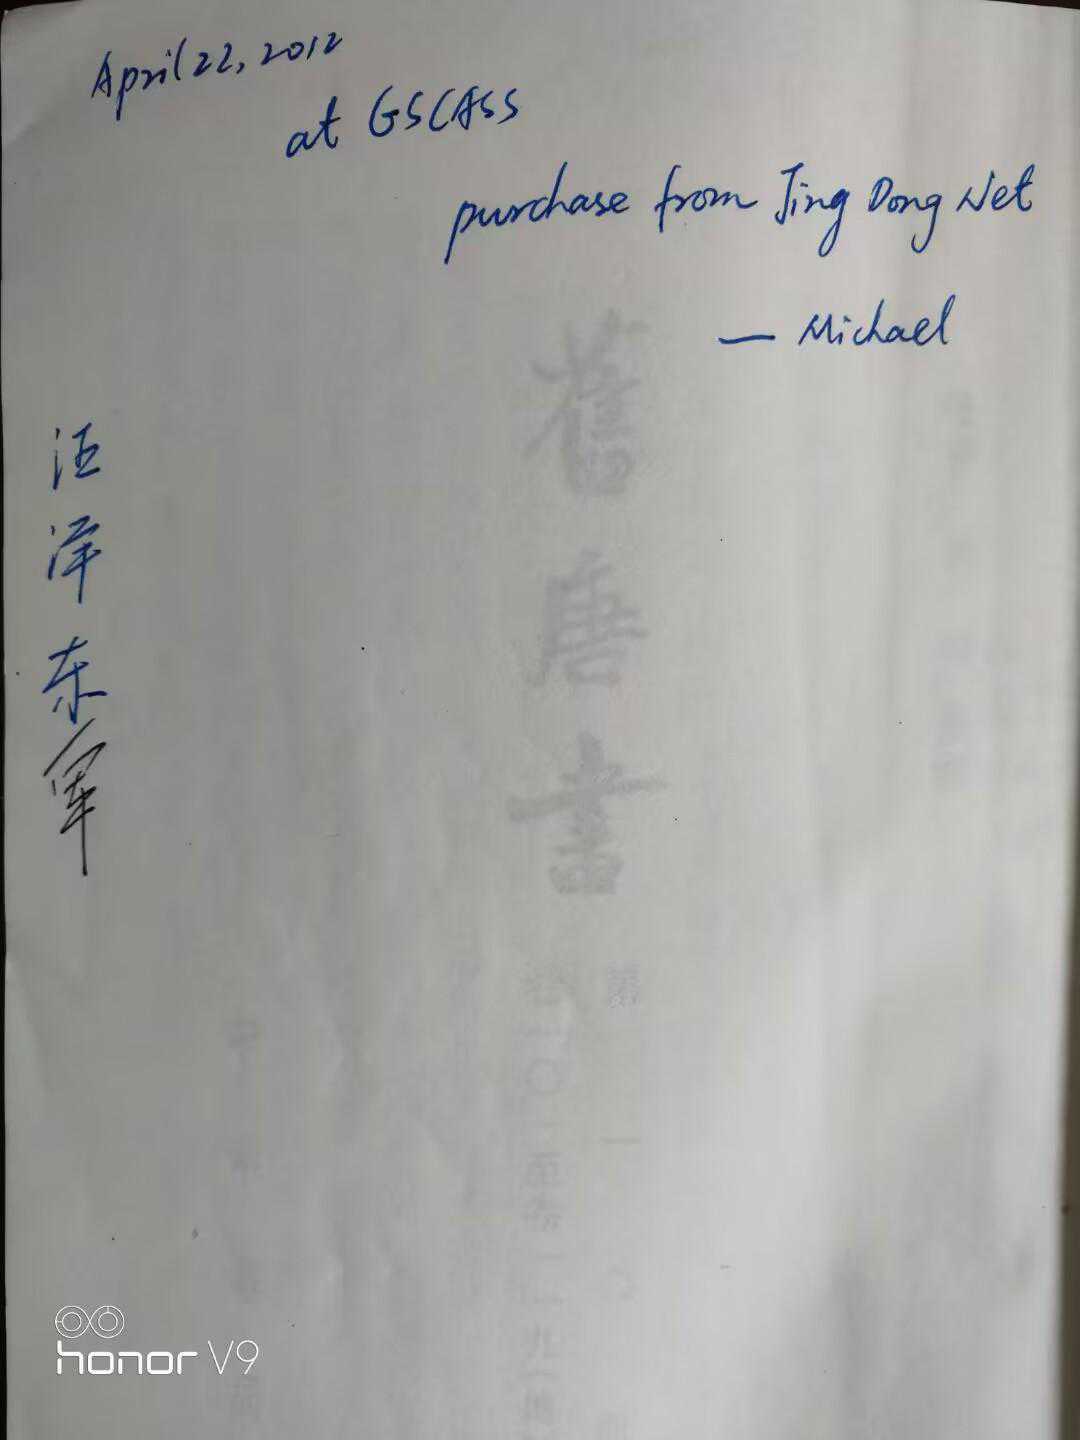 April 22, 2012
at GSCASS
purchase from Jing Dong Net
— Michael
汪泽东军
舊唐書
第一
honor V9